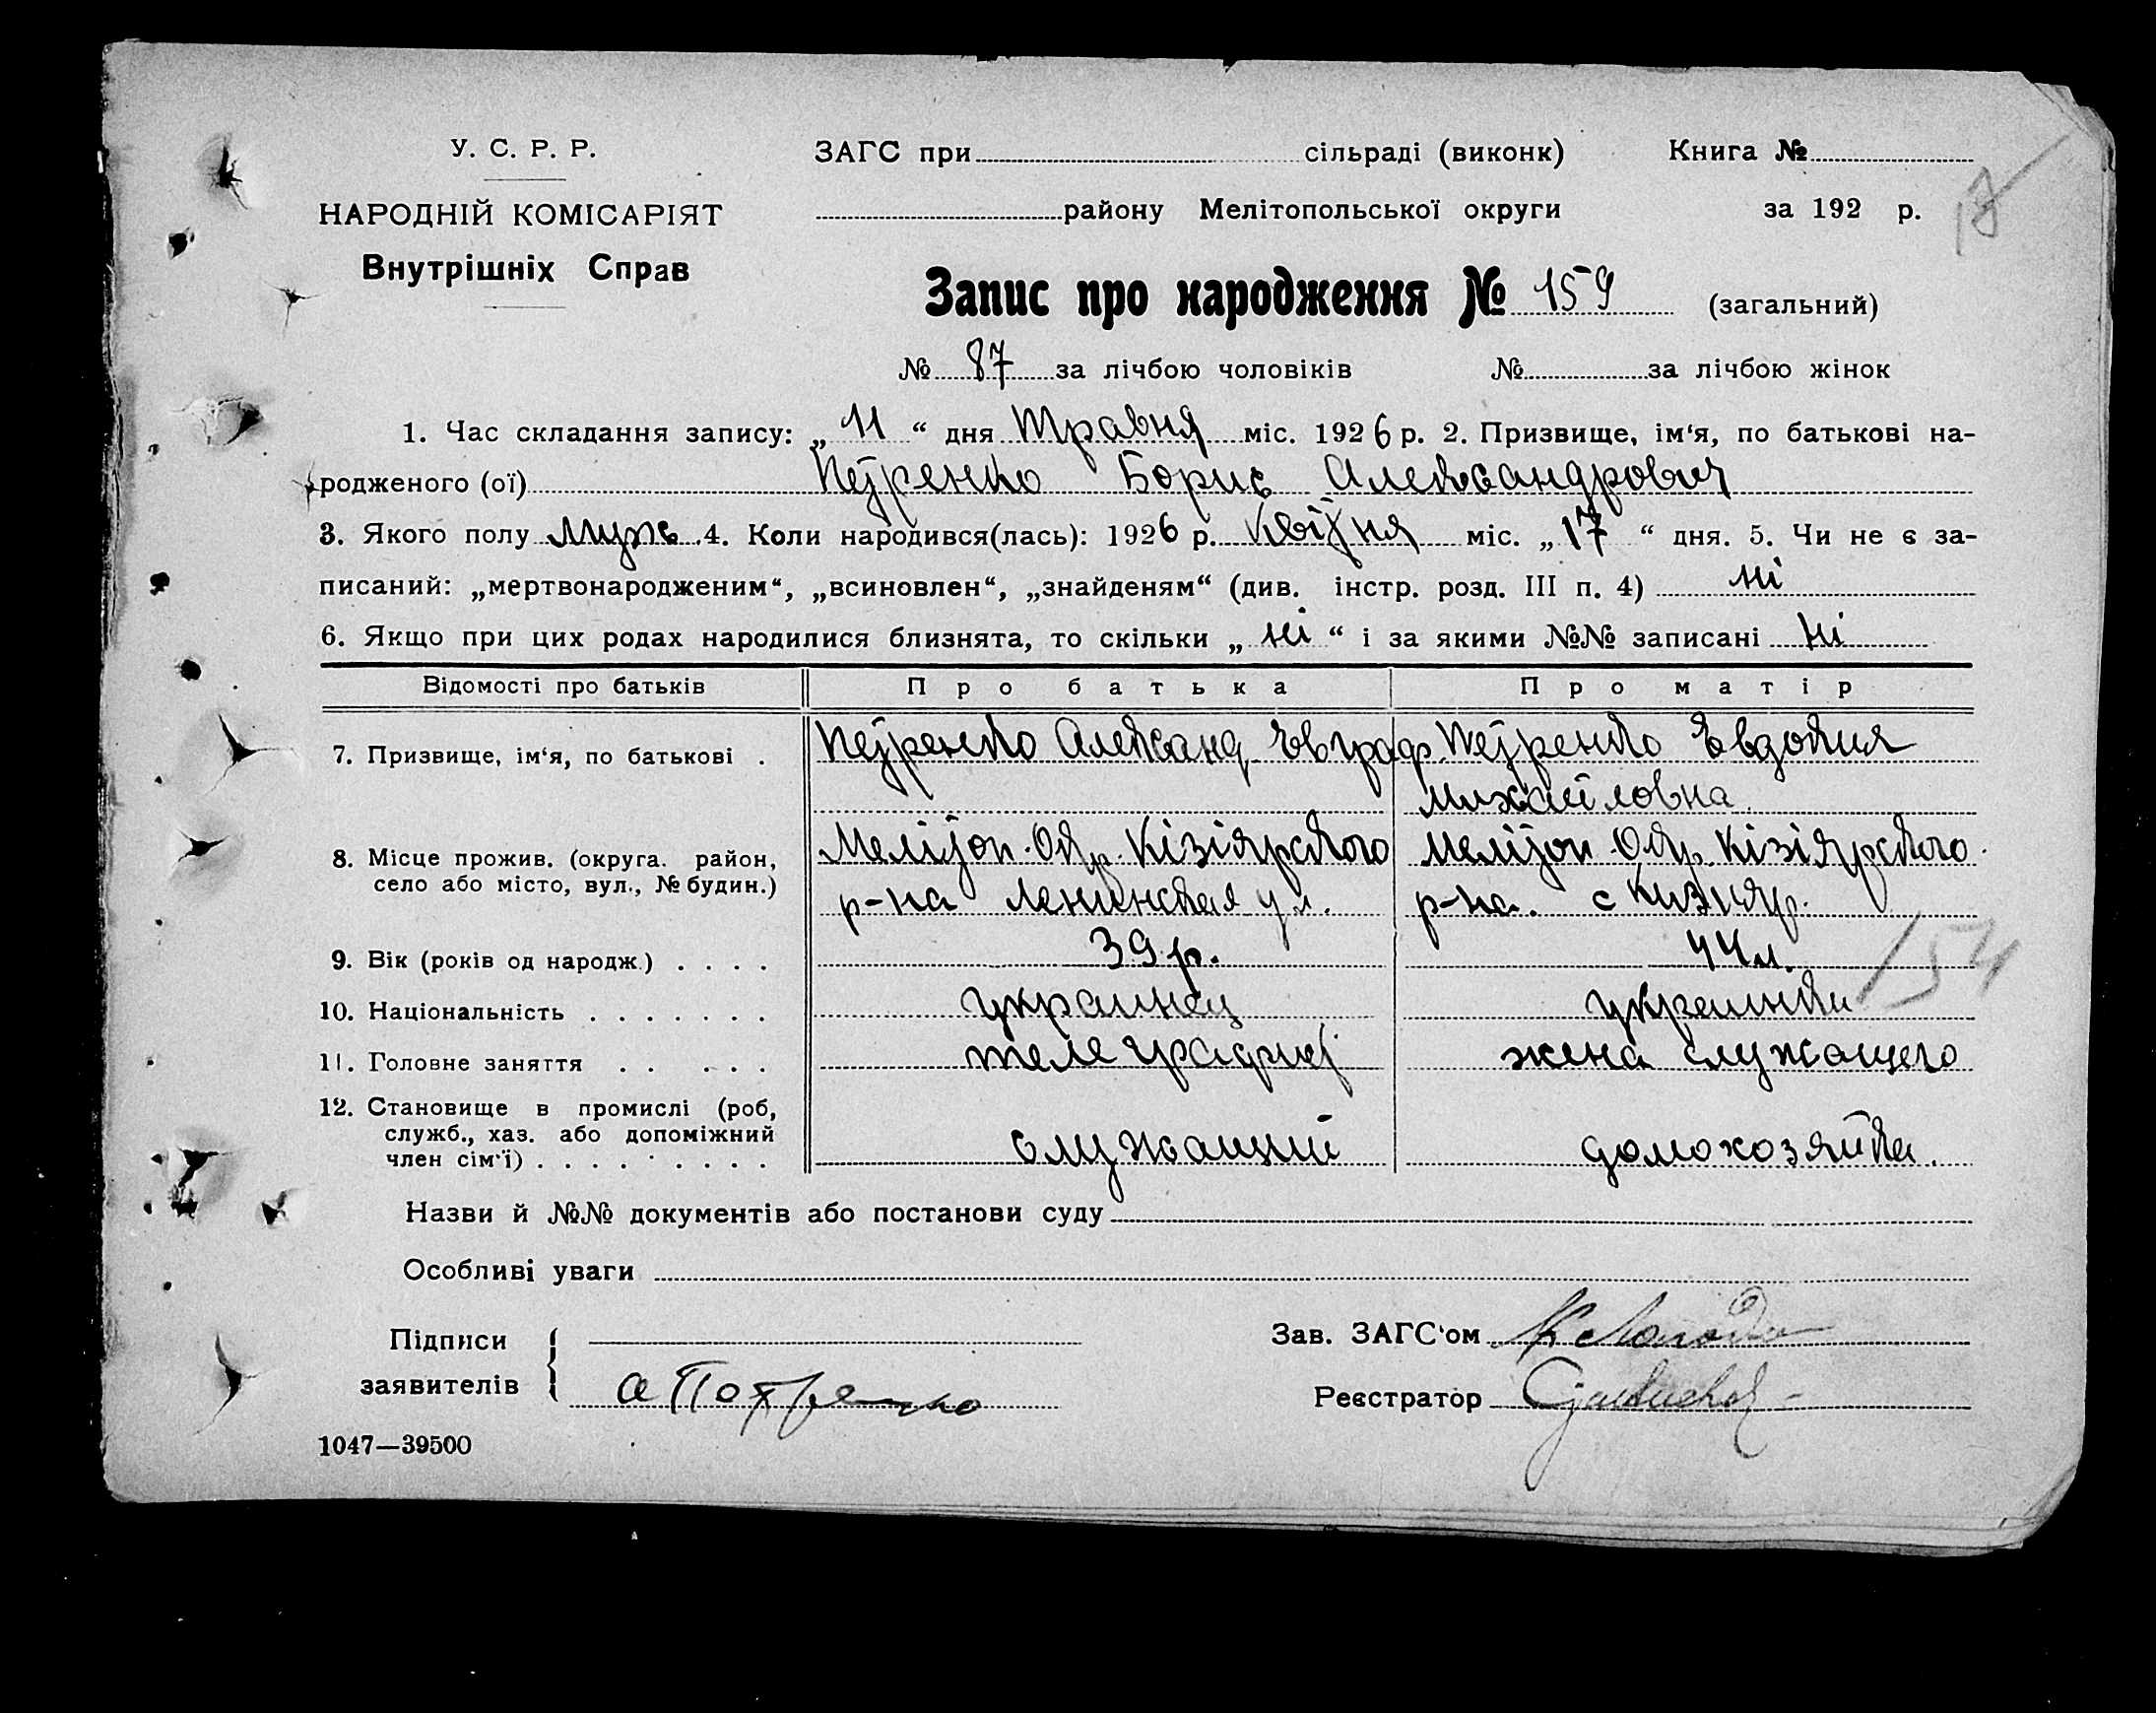 У. С. Р. Р.
НАРОДНІЙ КОМІСАРІЯТ
Внутрішніх Справ
ЗАГС при сільраді (виконк) Книга №
району Мелітопольської округи за 192 р.
Запис про народження № 159 (загальний)
№ 87 за лічбою чоловіків № за лічбою жінок
1. Час складання запису: „11“ дня Травня міс. 1926 р. 2. Призвище, ім‘я, по батькові на-
родженого (ої) Петренко Борис Александрович
3. Якого полу муж. 4. Коли народився(лась): 1926 р. Квітня міс. „17“ дня. 5. Чи не є за-
писаний: „мертвонародженим“, „всиновлен“, „знайденям“ (див. інстр. розд. III п. 4) ні
6. Якщо при цих родах народилися близнята, то скільки „ні“ і за якими №№ записані ні
Відомості про батьків Про батька Про матір
7. Призвище, ім‘я, по батькові . Петренко Александ. Евграф. Петренко Евдокия
Михайловна
8. Місце прожив. (округа. район, село або місто, вул., № будин.) Мелітоп. Окр. Кізіярского Мелітоп. Окр. Кізіярского
р-на Ленинская ул. р-на. с Кизияр.
9. Вік (років од народж.) . . . . 39 р. 44 л.
154
10. Національність . . . . . . . украинец украинка
11. Головне заняття . . . . . телеграфист жена служащего
12. Становище в промислі (роб,
служб., хаз. або допоміжний
член сім‘ї) . . . . . . . . . служащий домохозяйка.
Назви й №№ документів або постанови суду
Особливі уваги
Підписи Зав. ЗАГС‘ом
заявителів А Петренко Реєстратор
1047—39500